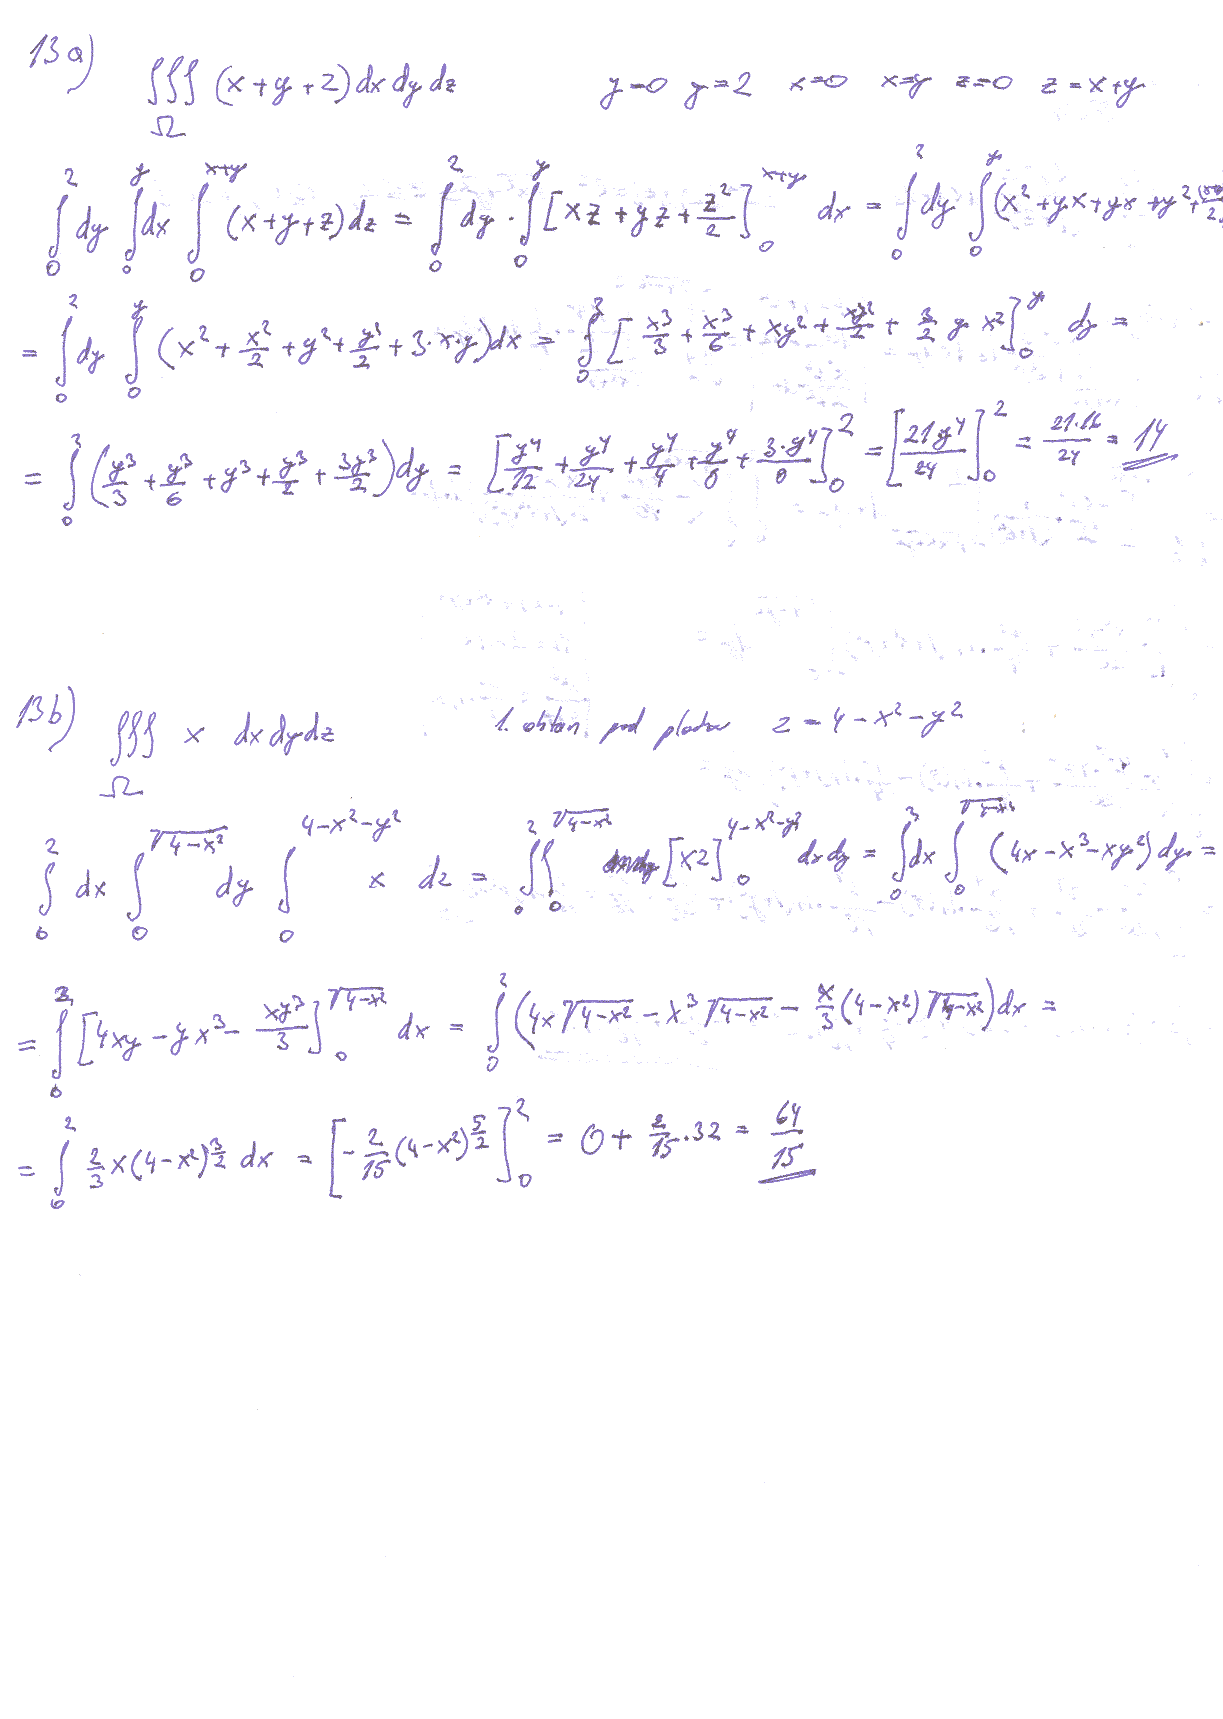 13a) ∫∫∫_Ω (x+y+z) dx dy dz y=0 y=2 x=0 x=y z=0 z=x+y
∫_0^2 dy ∫_0^y dx ∫_0^{x+y} (x+y+z) dz = ∫_0^2 dy · ∫_0^y [xz + yz + z²/2]_0^{x+y} dx = ∫_0^2 dy ∫_0^y (x² + yx + yx + y² +
= ∫_0^2 dy ∫_0^y (x² + x²/2 + y² + y²/2 + 3·x·y) dx = ∫_0^2 [x³/3 + x³/6 + xy² + xy²/2 + 3/2 y x²]_0^y dy =
= ∫_0^2 (y³/3 + y³/6 + y³ + y³/2 + 3y³/2) dy = [y⁴/12 + y⁴/24 + y⁴/4 + y⁴/8 + 3·y⁴/8]_0^2 = [21y⁴/24]_0^2 = 21·16/24 = 14
13b) ∫∫∫_Ω x dx dy dz 1. oktan pod plochou z = 4-x²-y²
∫_0^2 dx ∫_0^{√(4-x²)} dy ∫_0^{4-x²-y²} x dz = ∫_0^2 ∫_0^{√(4-x²)} [xz]_0^{4-x²-y²} dx dy = ∫_0^2 dx ∫_0^{√(4-x²)} (4x-x³-xy²) dy =
= ∫_0^2 [4xy - yx³ - xy³/3]_0^{√(4-x²)} dx = ∫_0^2 (4x√(4-x²) - x³√(4-x²) - x/3 (4-x²)√(4-x²)) dx =
= ∫_0^2 2/3 x(4-x²)^{3/2} dx = [-2/15 (4-x²)^{5/2}]_0^2 = 0 + 2/15·32 = 64/15